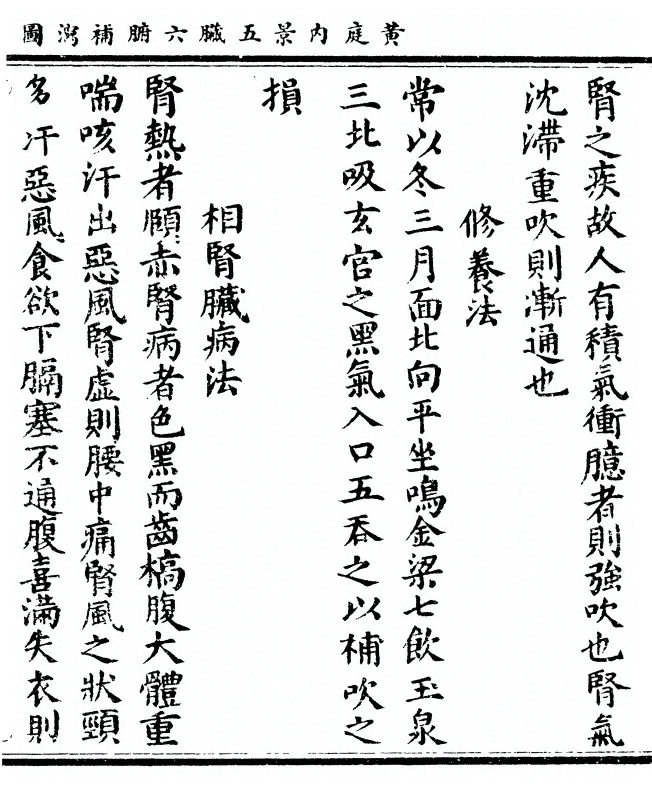 黃庭內景五臟六腑補瀉圖
腎之疾故人有積氣衝臆者則強吹也腎氣
沈滯重吹則漸通也
修養法
常以冬三月面北向平坐鳴金梁七飲玉泉
三北吸玄宮之黑氣入口五吞之以補吹之
損
相腎臟病法
腎熱者頤赤腎病者色黑而齒槁腹大體重
喘咳汗出惡風腎虛則腰中痛腎風之狀頸
多汗惡風食欲下膈塞不通腹喜滿失衣則